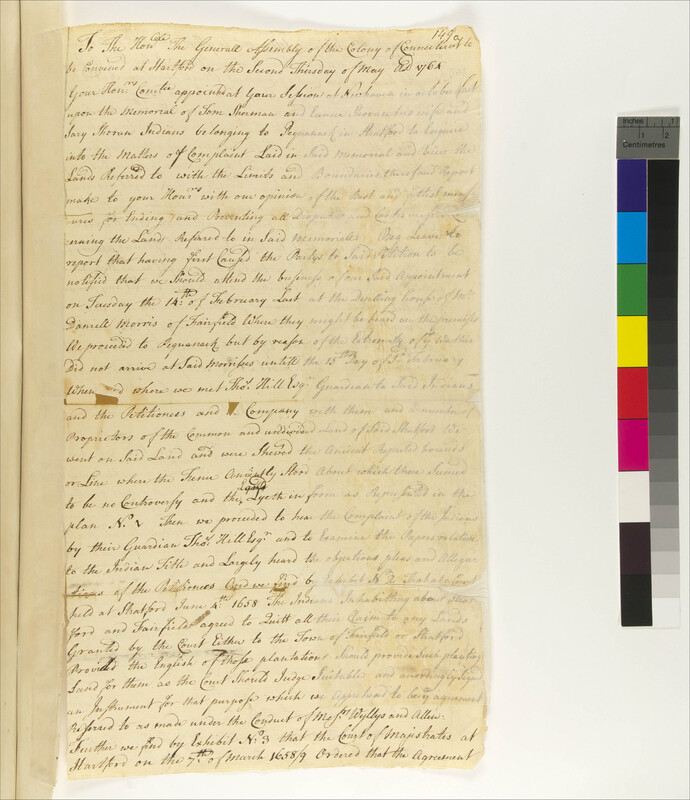 149a
To The Honble The Generall Assembly of the Colony of Connecticut to
be Convened at Hartford on the Second Thursday of May AD 1764
Your Honrs Comtee appointed at Your Session at Newhaven in october last
upon the Memorial of Tom Sherman and Eunice Shoran his wife and
Sary Shoran Indians belonging to Pequanack in Stratford to Enquire
into the Matters of Complaint Laid in Said Memorial and View the
Lands Referred to with the Limits and Boundaries thereof and Report
make to your Honrs with our opinion of the Best and
ures for Ending and Preventing all Disputes and
cerning the Lands Referred to in Said Memorial Beg Leave to
report that having first Caused the Partys to Said Petition to be
notifid that we Should attend the business of our Said Appointment
on Tuesday the 14th of February Last at the Dwelling house of Mr
Daniell Morris of Fairfield When they might be heard on the premises
We proceeded to Pequanack but by reason of the Extremity of ye Weather
Did not arrive at Said Morrisses untill the 15th Day of Sd February
When and where we met Thos. Hill Esqr Guardian to Said Indians
and the Petitioners and Company with them and a number of
Proprietors of the Common and undivided Land of Said Stratford We
went on Said Land and were Shewed the Ancient Reputed bounds
or Line where the Fence Anciently Stood About which there Seemed
to be no Controversy and the Land Lyeth in form as Represented in the
plan No. 1 Then we proceeded to hear the Complaint of the Indians
by their Guardian Thos. Hill Esqr and to Examine the Papers relative
to the Indian Title and Largely heard the objections pleas and Allega
tions of the Petitioners And we find by Exhibit No 2 that at a Court
held at Stratford June 4th 1658 The Indians Inhabitting about Strat
ford and Fairfield agreed to Quitt all their Claim to any Lands
Granted by the Court Either to the Town of Fairfield or Stratford
Provided the English of those plantations Should provide Such planting
Land for them as the Court Should Judge Suitable and accordingly Sign
an Instrument for that purpose which we apprehend to be ye agreement
Referred to as made under the Conduct of Messrs Wyllys and Allen.
Further we find by Exhibit No. 3 that the Court of Magistrates at
Hartford on the 7th of March 1658/9 Ordered that the Agreement
Inches 1 2
Centimetres